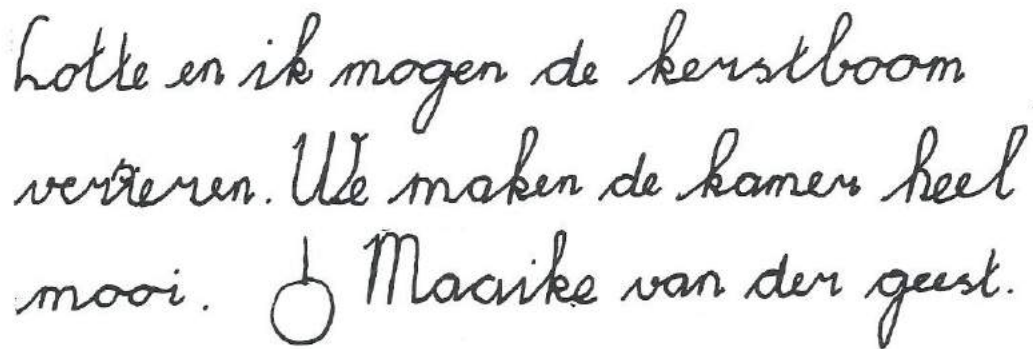 Lotte en ik mogen de kerstboom
versieren. We maken de kamer heel
mooi. Maaike van der geest.